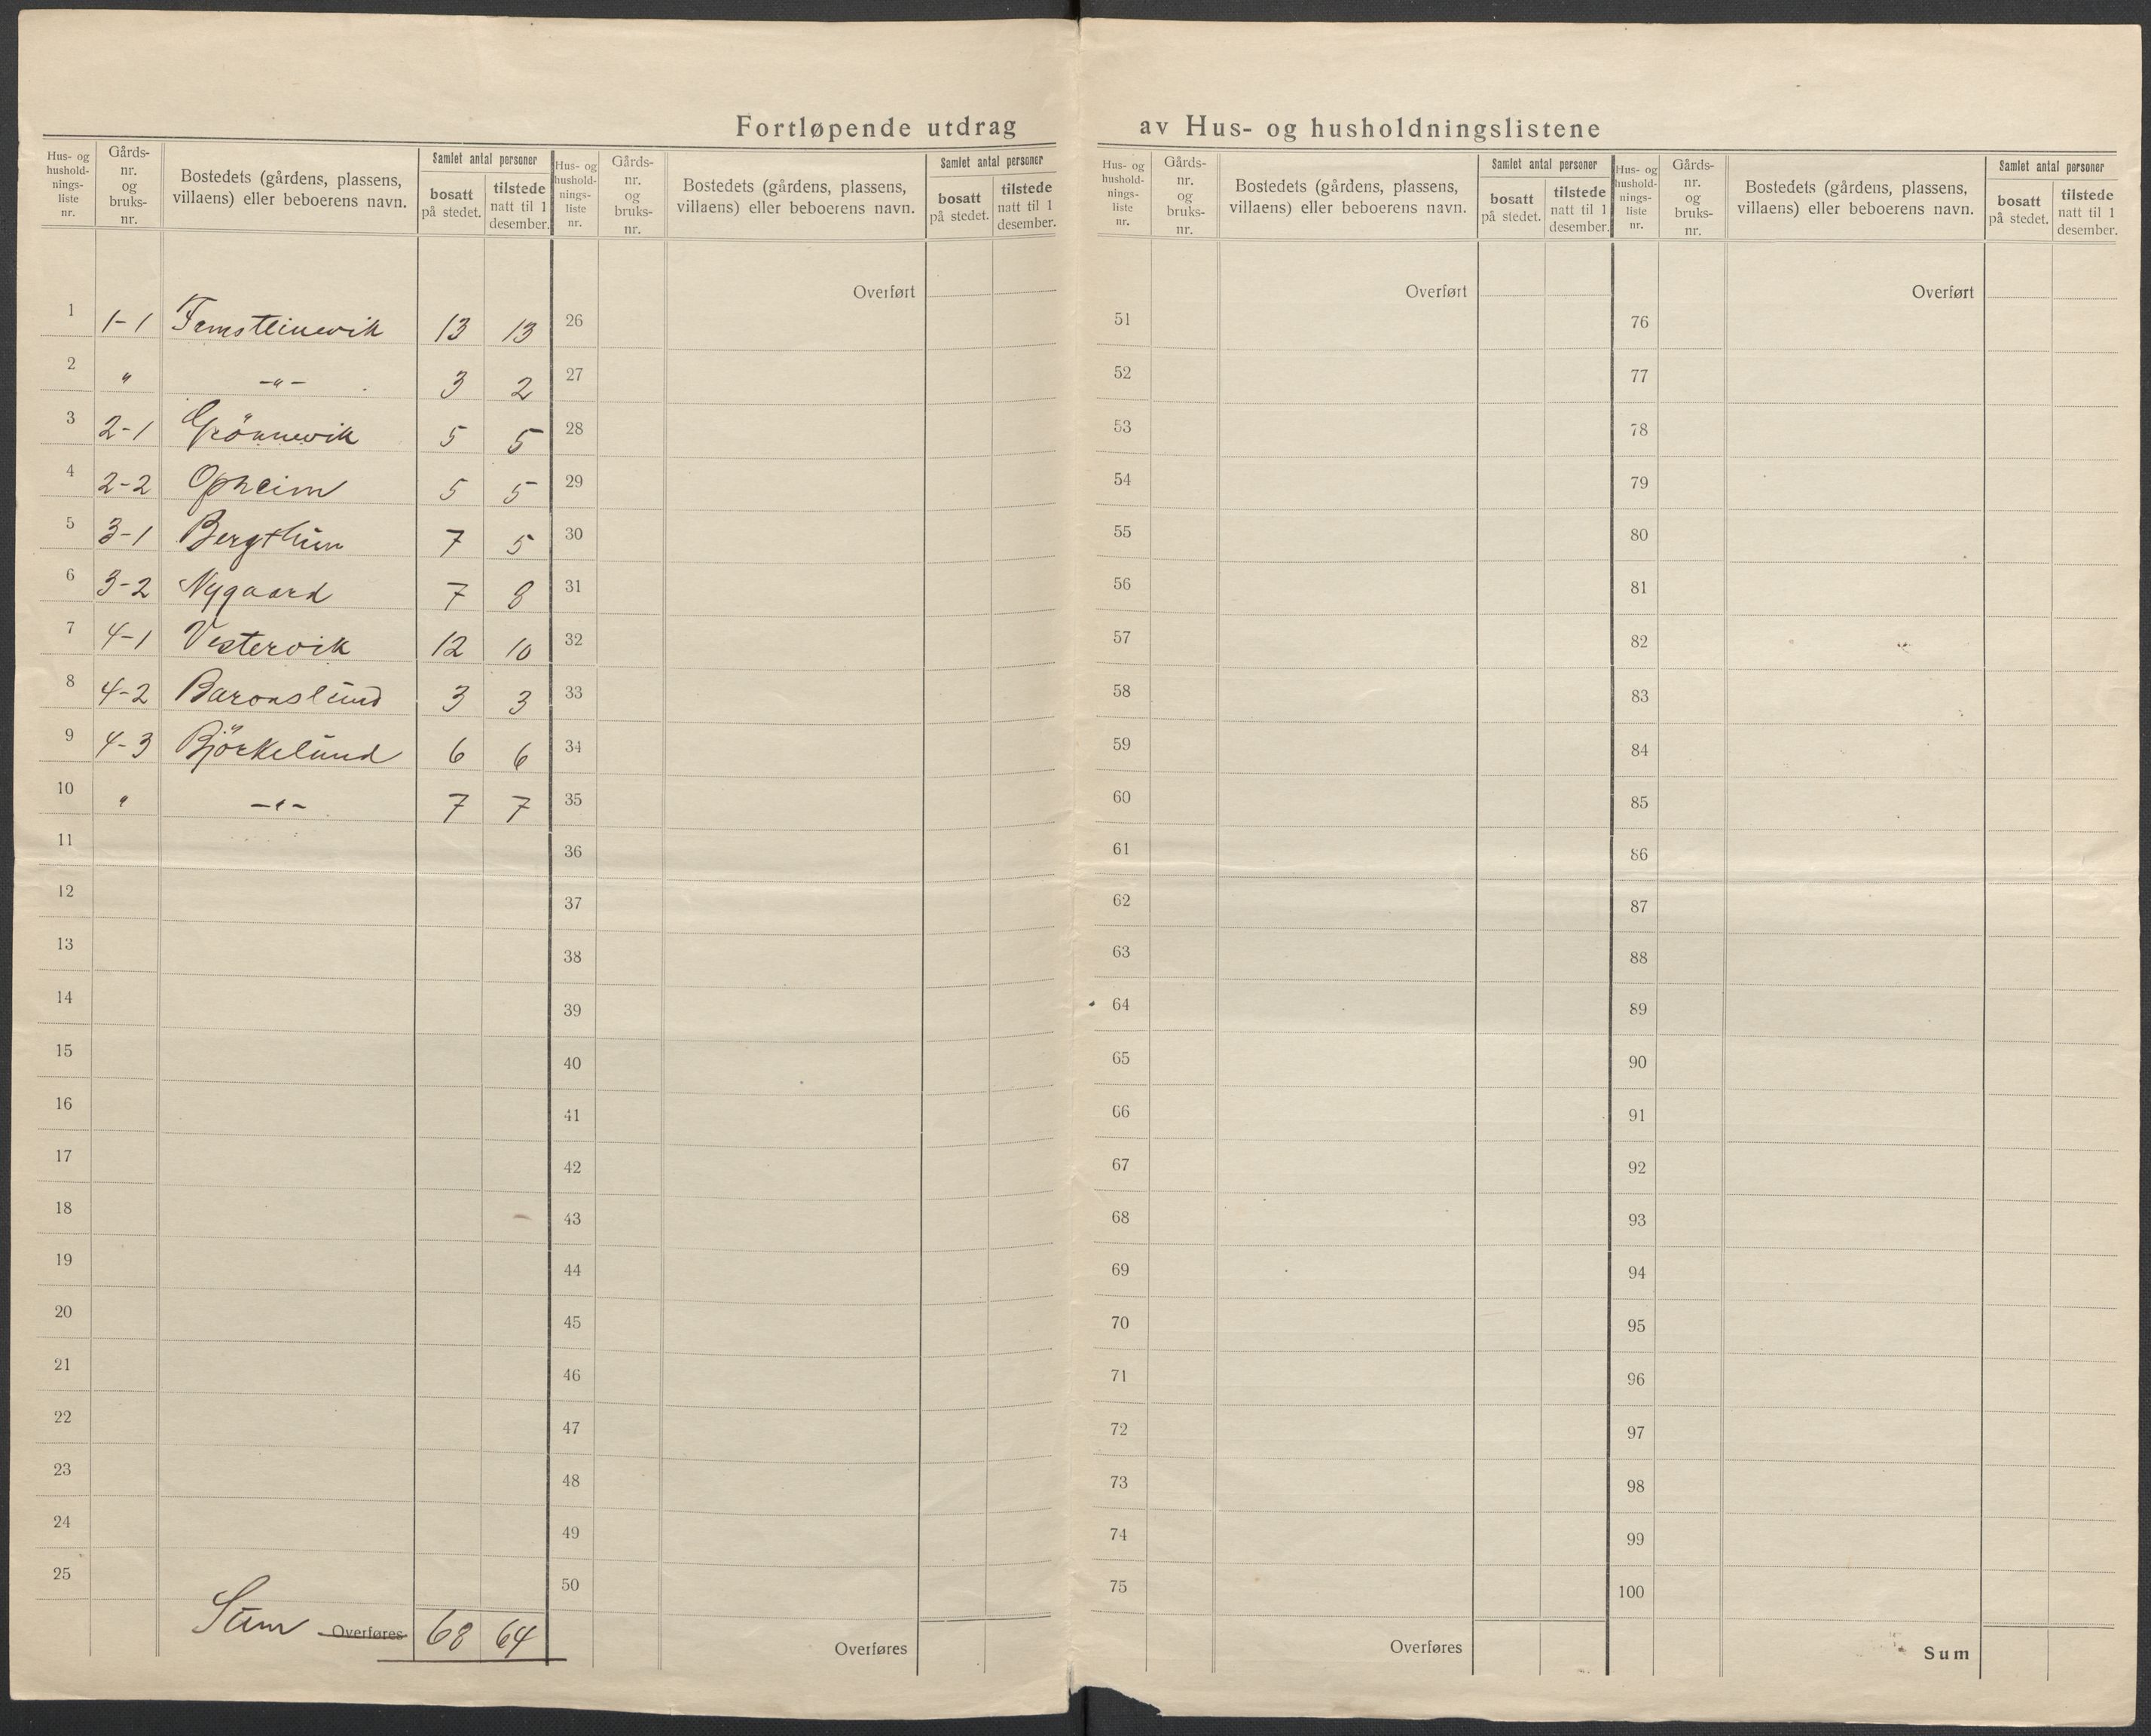 Fortløpende utdrag av Hus- og husholdningslistene
Hus- og hushold-nings-liste nr. | Gårds-nr. og bruks-nr. | Bostedets (gårdens, plassens, villaens) eller beboerens navn. | Samlet antal personer | bosatt på stedet. | tilstede natt til 1 desember.
1 1-1 13 13
2 " -"- 3 2
3 2-1 Grönnevik 5 5
4 2-2 Opheim 5 5
5 3-1 Bergthun 7 5
6 3-2 Nygaard 7 8
7 4-1 Vestervik 12 10
8 4-2 Baronslund 3 3
9 4-3 Björkelund 6 6
10 " -"- 7 7
11
12
13
14
15
16
17
18
19
20
21
22
23
24
25
Sum Overføres 68 64
Hus- og hushold-nings-liste nr. | Gårds-nr. og bruks-nr. | Bostedets (gårdens, plassens, villaens) eller beboerens navn. | Samlet antal personer | bosatt på stedet. | tilstede natt til 1 desember.
Overført
26
27
28
29
30
31
32
33
34
35
36
37
38
39
40
41
42
43
44
45
46
47
48
49
50
Overføres
Hus- og hushold-nings-liste nr. | Gårds-nr. og bruks-nr. | Bostedets (gårdens, plassens, villaens) eller beboerens navn. | Samlet antal personer | bosatt på stedet. | tilstede natt til 1 desember.
Overført
51
52
53
54
55
56
57
58
59
60
61
62
63
64
65
66
67
68
69
70
71
72
73
74
75
Overføres
Hus- og hushold-nings-liste nr. | Gårds-nr. og bruks-nr. | Bostedets (gårdens, plassens, villaens) eller beboerens navn. | Samlet antal personer | bosatt på stedet. | tilstede natt til 1 desember.
Overført
76
77
78
79
80
81
82
83
84
85
86
87
88
89
90
91
92
93
94
95
96
97
98
99
100
Sum